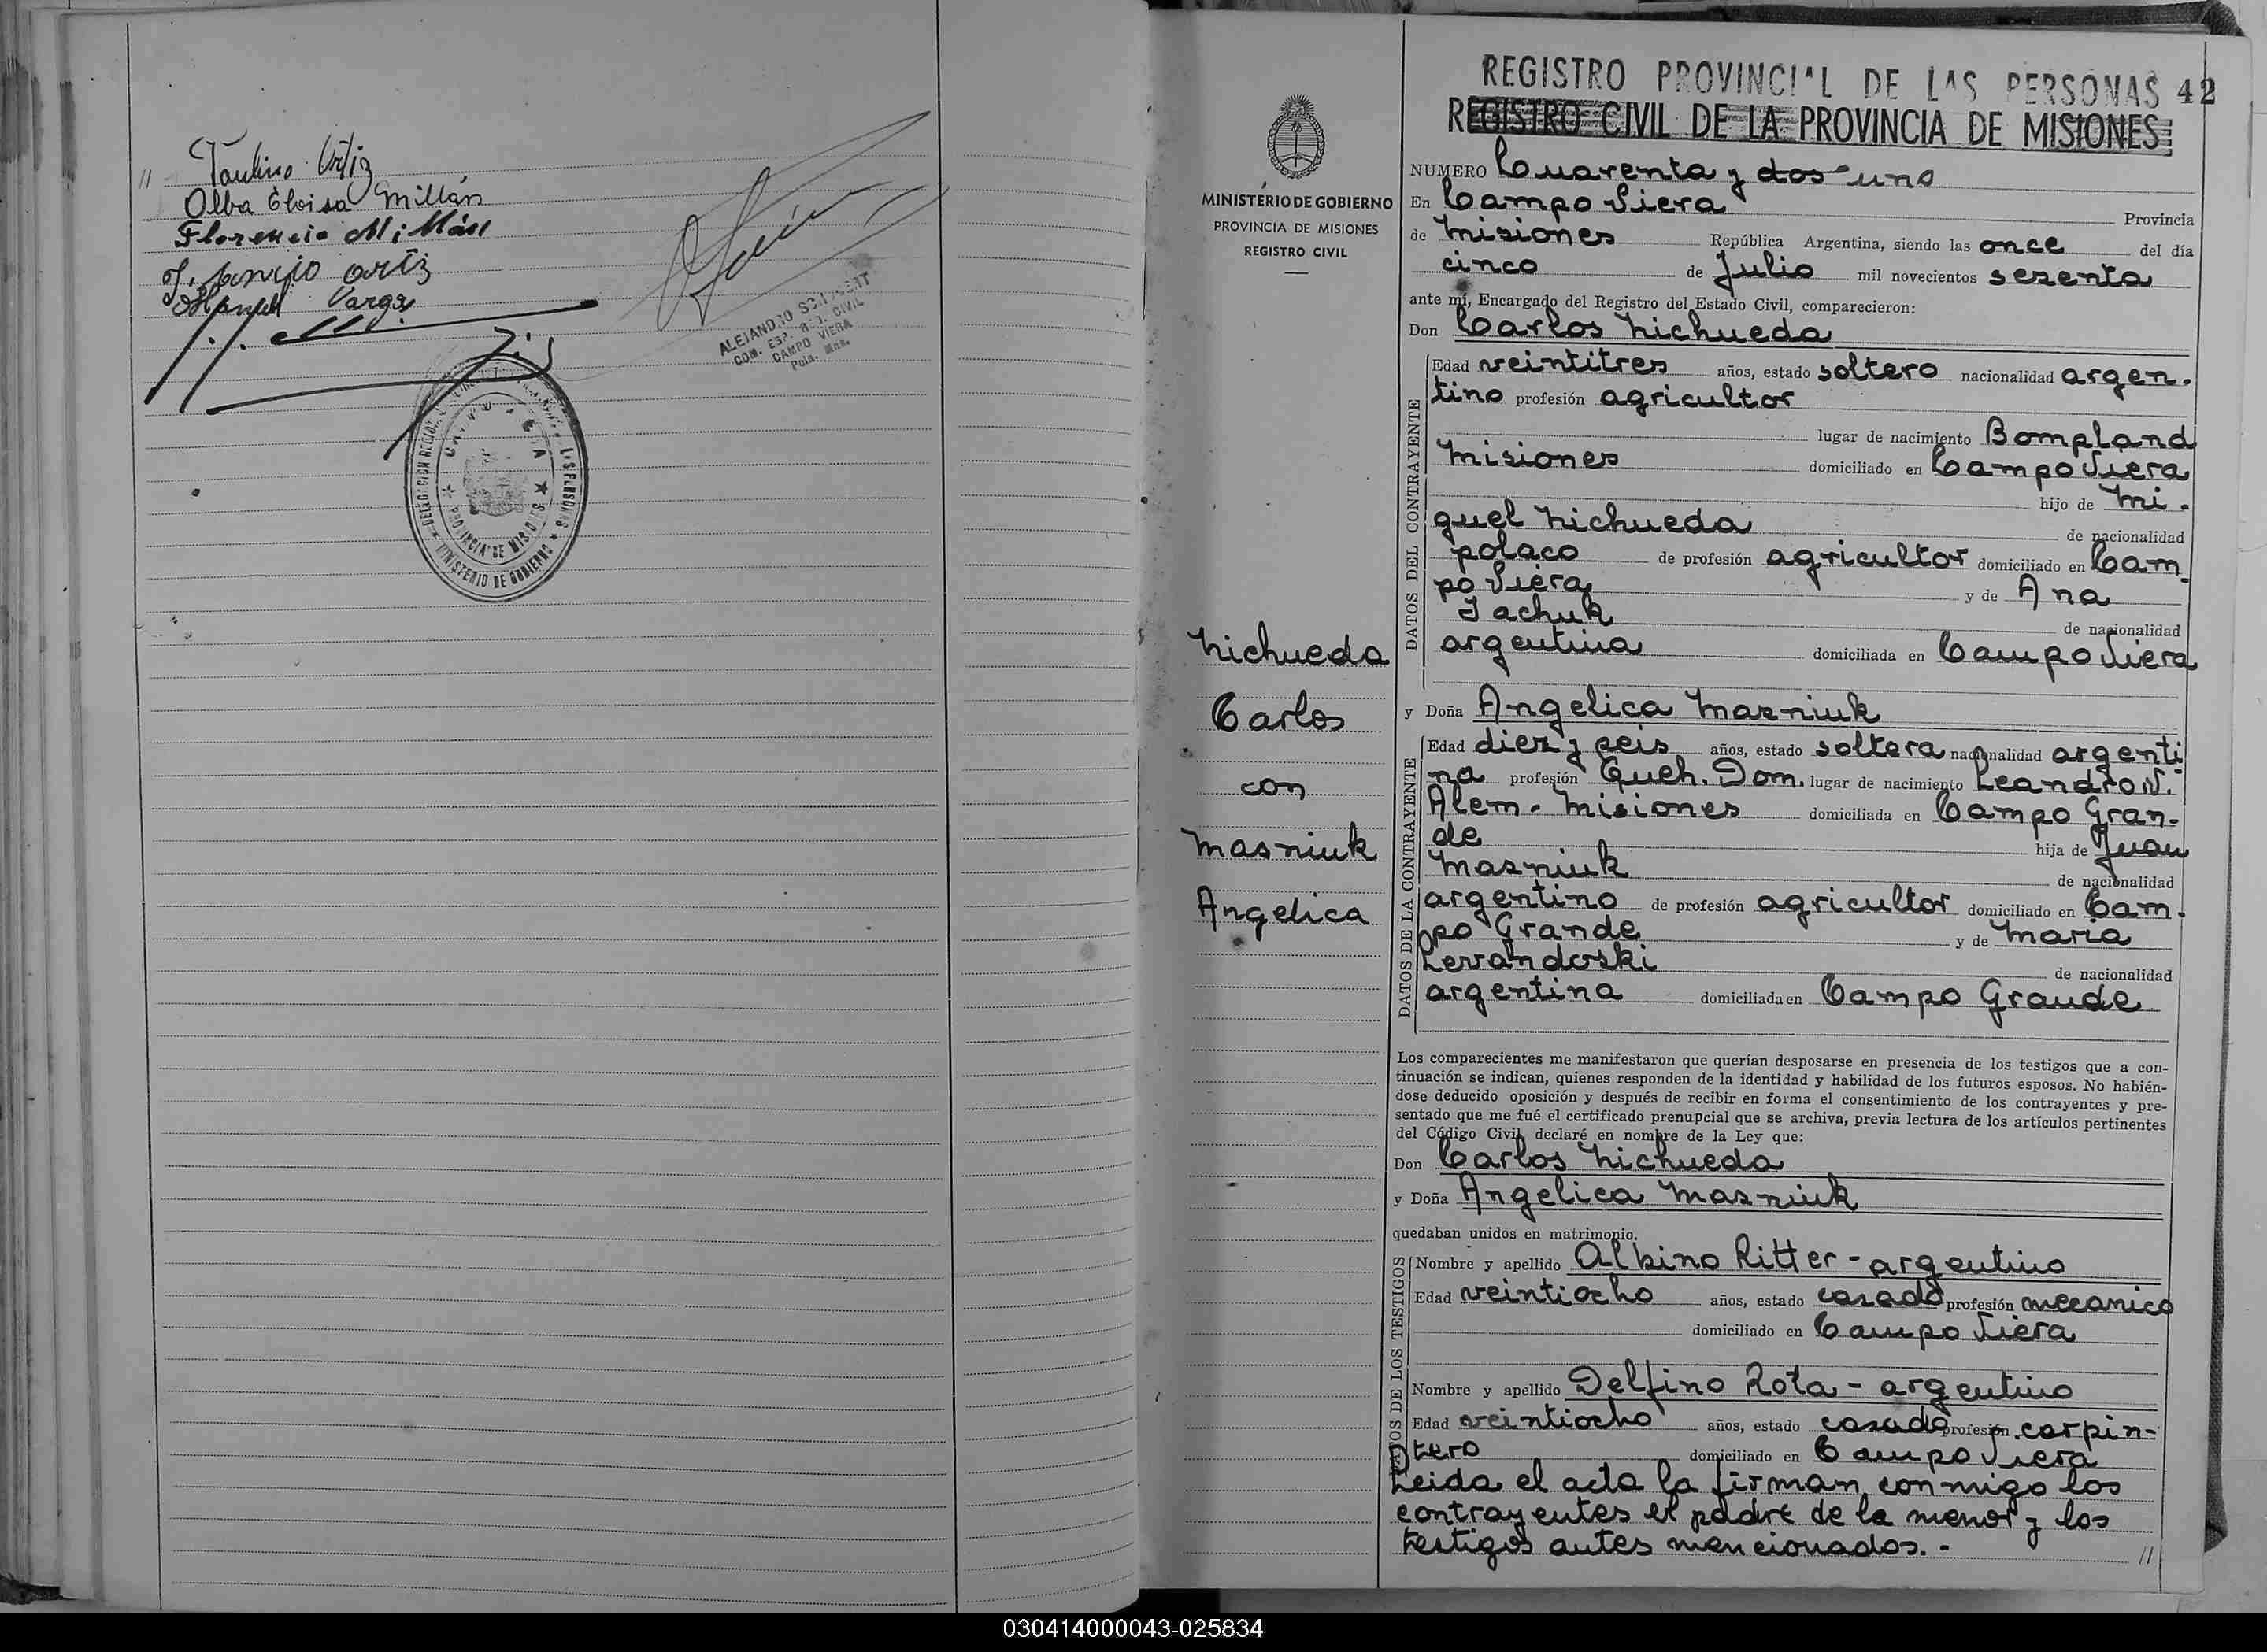 // Paulino Ortiz
Olba Eloisa Millán
Florencio Millán
ortiz
Manuel Vargas
ALEJANDRO
COM. ESP. REG. CIVIL
CAMPO VIERA
Pcia. Mns.
PROVINCIA DE MISIONES
MINISTERIO DE GOBIERNO
MINISTERIO DE GOBIERNO
PROVINCIA DE MISIONES
REGISTRO CIVIL
REGISTRO PROVINCIAL DE LAS PERSONAS 42
REGISTRO CIVIL DE LA PROVINCIA DE MISIONES
NUMERO Cuarenta y dos uno
En Campo Viera Provincia
de Misiones República Argentina, siendo las once del día
cinco de Julio mil novecientos sesenta
ante mí, Encargado del Registro del Estado Civil, comparecieron:
Don Carlos Nichueda
DATOS DEL CONTRAYENTE
Edad veintitres años, estado soltero nacionalidad argen-
tino profesión agricultor
lugar de nacimiento Bompland
Misiones domiciliado en Campo Viera
hijo de Mi-
guel Nichueda de nacionalidad
polaco de profesión agricultor domiciliado en Cam-
po Viera y de Ana
Jachuk de nacionalidad
argentina domiciliada en Campo Viera
Nichueda
Carlos
con
Masniuk
Angelica
y Doña Angelica Masniuk
DATOS DE LA CONTRAYENTE
Edad diez y seis años, estado soltera nacionalidad argenti
na profesión Queh. Dom. lugar de nacimiento Leandro N.
Alem - Misiones domiciliada en Campo Gran-
de hija de Juan
Masniuk de nacionalidad
argentino de profesión agricultor domiciliado en Cam-
po Grande y de Maria
Levandoski de nacionalidad
argentina domiciliada en Campo Grande
Los comparecientes me manifestaron que querían desposarse en presencia de los testigos que a con-
tinuación se indican, quienes responden de la identidad y habilidad de los futuros esposos. No habién-
dose deducido oposición y después de recibir en forma el consentimiento de los contrayentes y pre-
sentado que me fué el certificado prenupcial que se archiva, previa lectura de los artículos pertinentes
del Código Civil, declaré en nombre de la Ley que:
Don Carlos Nichueda
y Doña Angelica Masniuk
quedaban unidos en matrimonio.
DATOS DE LOS TESTIGOS
Nombre y apellido Albino Ritter - argentino
Edad veintiocho años, estado casado profesión mecanico
domiciliado en Campo Viera
Nombre y apellido Delfino Rota - argentino
Edad veintiocho años, estado casado profesión carpin-
tero domiciliado en Campo Viera
Leida el acta la firman conmigo los
contrayentes el padre de la menor y los
testigos antes mencionados. - //
030414000043-025834